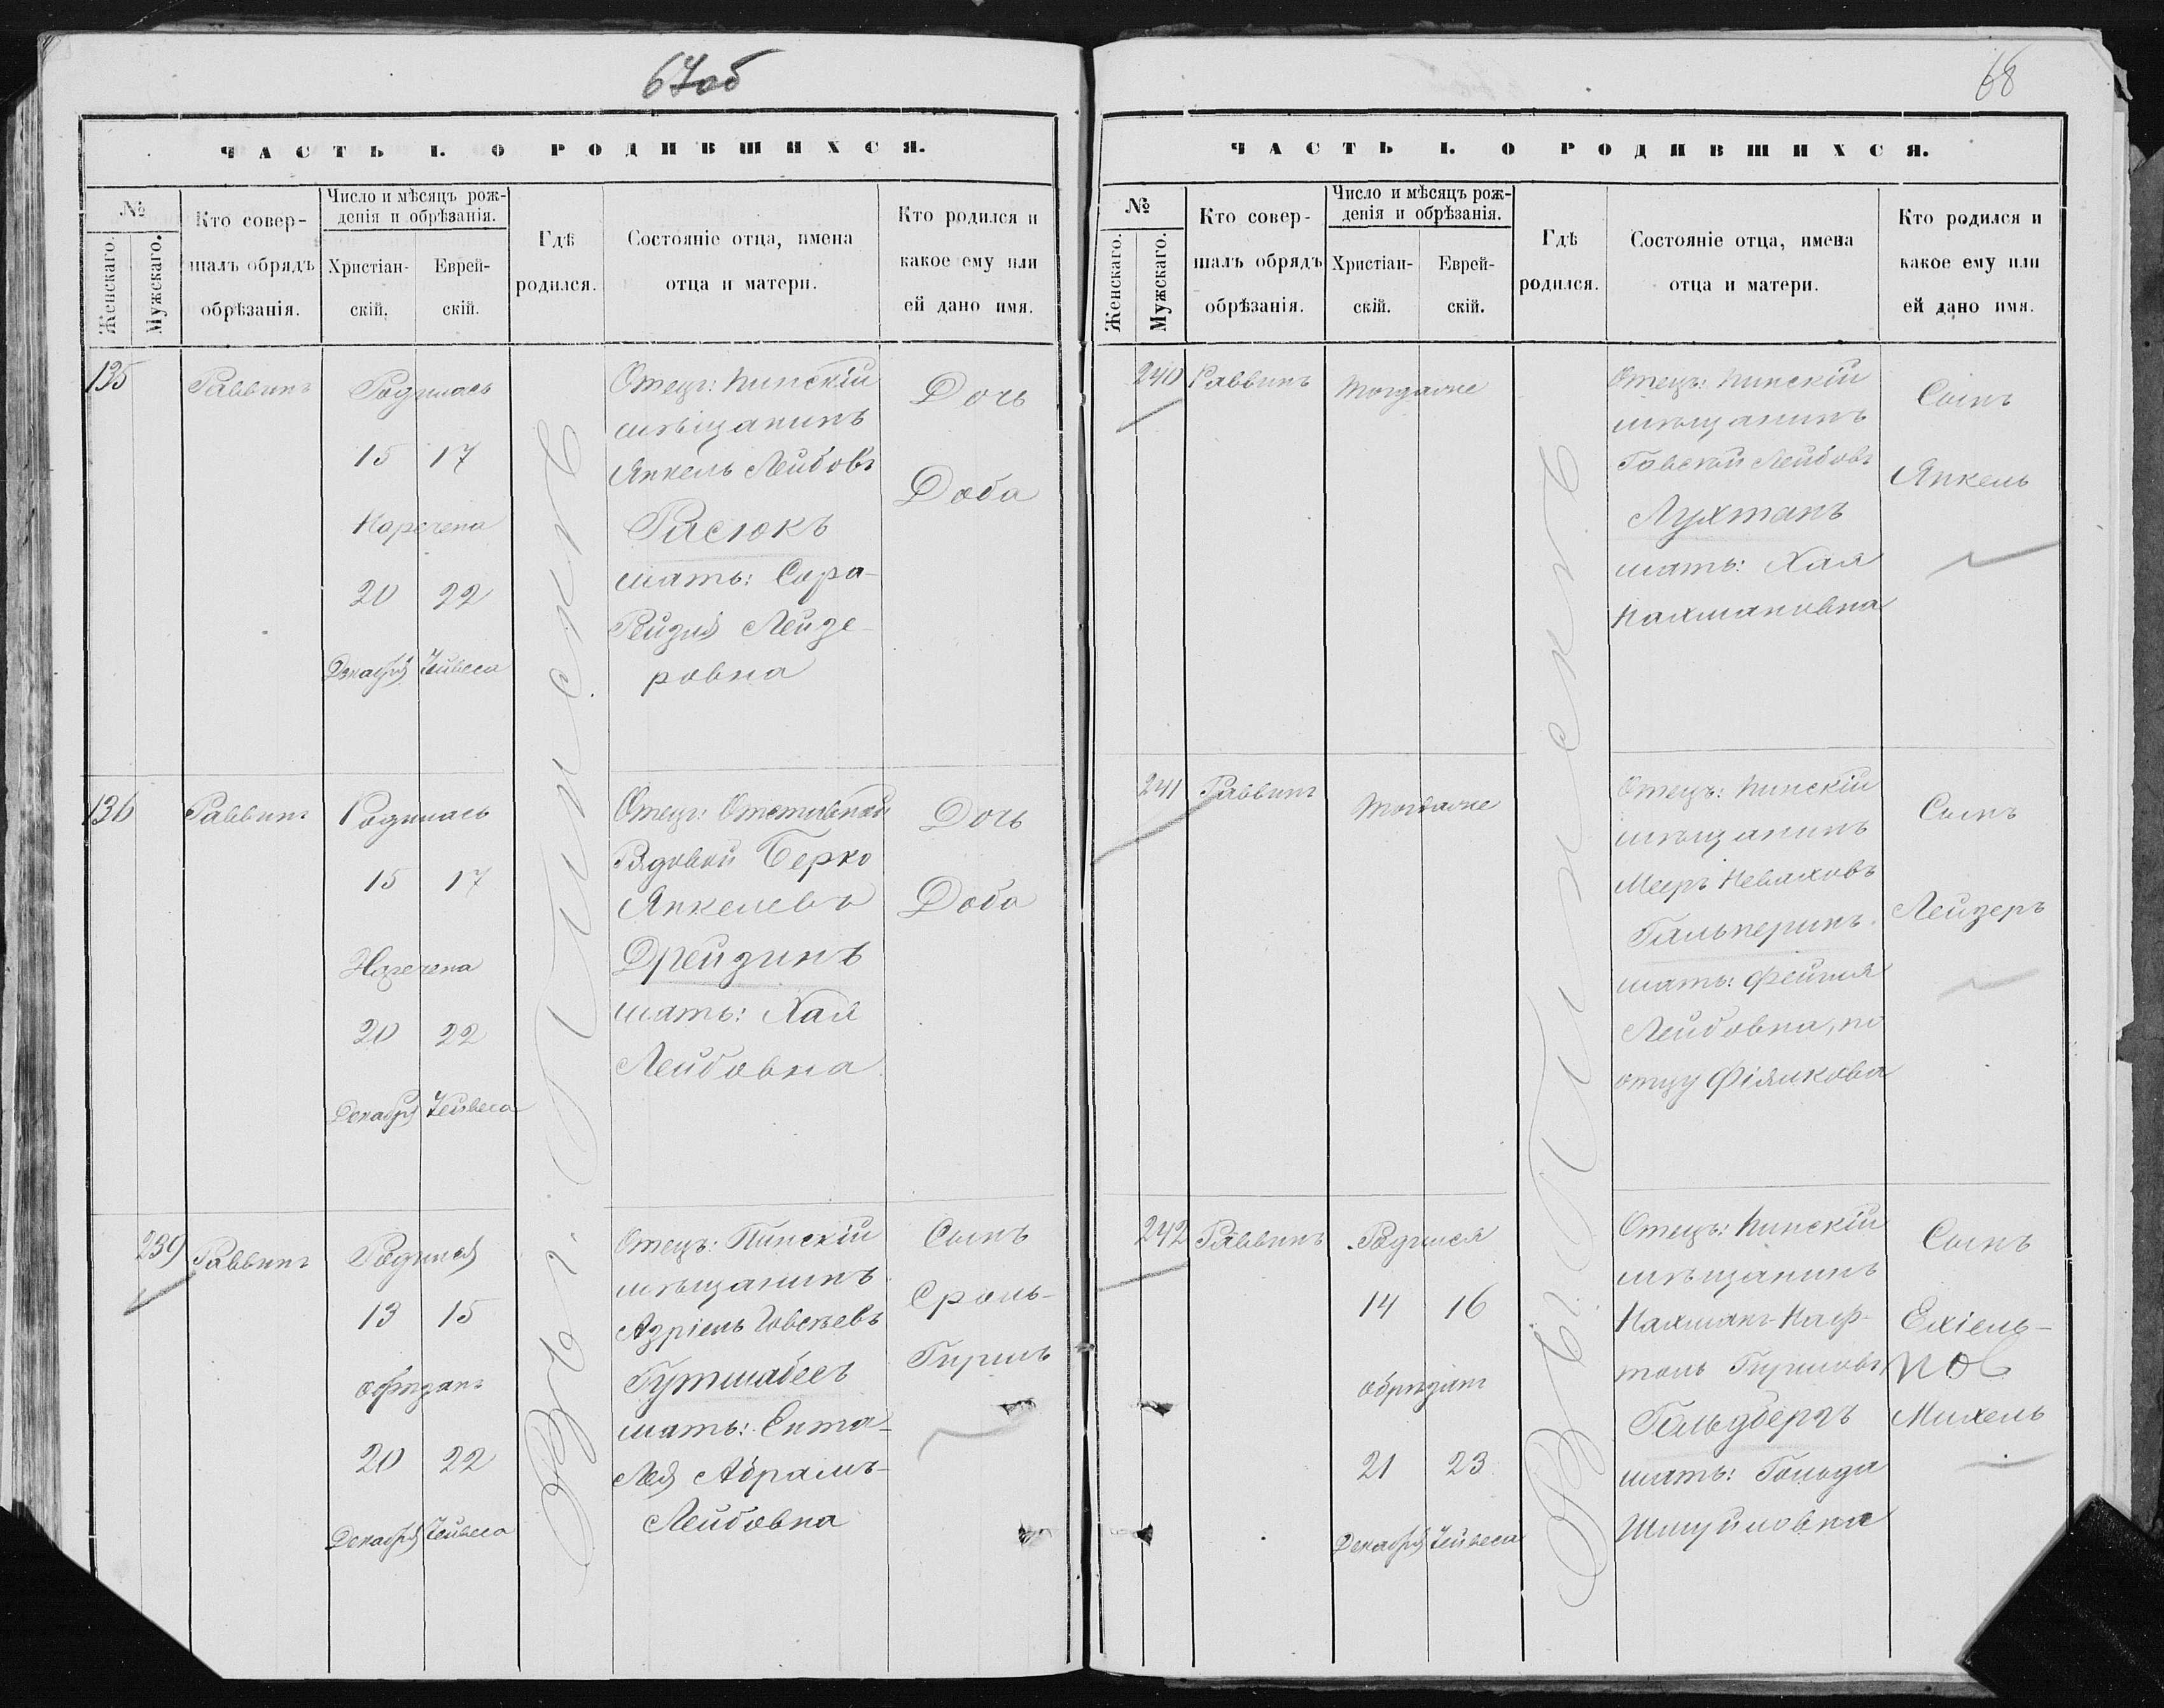 67об
ЧАСТЬ I. О РОДИВШИХСЯ.
№
Женскаго.
Мужскаго.
Кто совер-
шалъ обрядъ
обрѣзанія.
Число и мѣсяцъ рож-
денія и обрѣзанія.
Христіан-
скій.
Еврей-
скій.
Гдѣ
родился.
Состояніе отца, имена
отца и матери.
Кто родился и
какое ему или
ей дано имя.
135
Раввинъ
Родилась
15 17
Наречена
20 22
Декабря Тейвеса
Отецъ: Пинскій
мѣщанинъ
Янкель Лейбовъ
Расюкъ
мать: Сора-
Рейзля Лейзе-
ровна
Дочь
Доба
136
Раввинъ
Родилась
15 17
Наречена
20 22
Декабря Тейвеса
Отецъ: Отставной
Рядовой Берко
Янкелевъ
Дрейзинъ
мать: Хая
Лейбовна
Дочь
Доба
239
Раввинъ
Родился
13 15
обрѣзанъ
20 22
Декабря Тейвеса
Отецъ: Пинскій
мѣщанинъ
Азріель Іовсѣевъ
Гутмабесъ
мать: Ента-
Лея Абрамъ-
Лейбовна
Сынъ
Сроль-
Гиршъ
Въ г. Пинскѣ
68
ЧАСТЬ I. О РОДИВШИХСЯ.
№
Женскаго.
Мужскаго.
Кто совер-
шалъ обрядъ
обрѣзанія.
Число и мѣсяцъ рож-
денія и обрѣзанія.
Христіан-
скій.
Еврей-
скій.
Гдѣ
родился.
Состояніе отца, имена
отца и матери.
Кто родился и
какое ему или
ей дано имя.
240
Раввинъ
тогдаже
Отецъ: Пинскій
мѣщанинъ
Говсѣй Лейбовъ
Лухтанъ
мать: Хая
Нахмановна
Сынъ
Янкель
241
Раввинъ
тогдаже
Отецъ: Пинскій
мѣщанинъ
Мееръ Неваховъ
Гальперинъ
мать: Фейгля
Лейбовна, по
отцу Фіялкова
Сынъ
Лейзеръ
242
Раввинъ
Родился
14 16
обрѣзанъ
21 23
Декабря Тейвеса
Отецъ: Пинскій
мѣщанинъ
Нахманъ-Наф-
толь Гиршовъ
Гольдбергъ
мать: Гольда
Шмуйловна
Сынъ
Ехіель-
Михель
Въ г. Пинскѣ